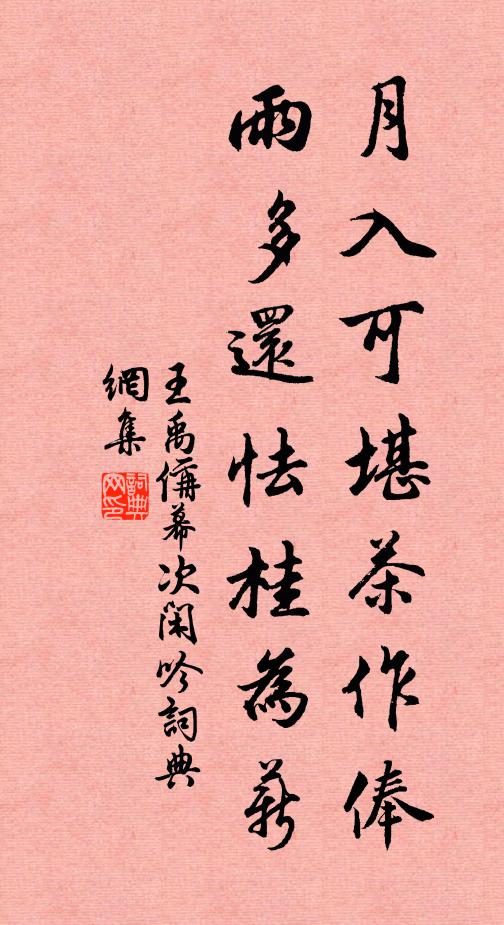 月入可堪茶作俸
雨多還怯桂為薪
王禹偁幕次閑吟詞典
網集
詞典網印